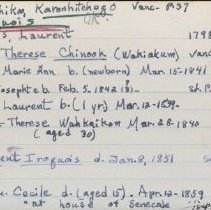 hiko, Karonhitchego Vanc. P37
s, Laurent 1798
Therese Chinook (Wakiakum) Vanc
Marie Ann b. (newborn) Mar. 15-1841
Josephte b. Feb. 5. 1842 St.P.
Laurent b. (1 yr) Mar. 12-1839.
Therese Wahkaikom Mar. 28-1840
(aged 30)
ent Iroquois d. Jan. 8, 1851
Cecile d. (aged 15). Apr. 12-1839
"at house of Senecale